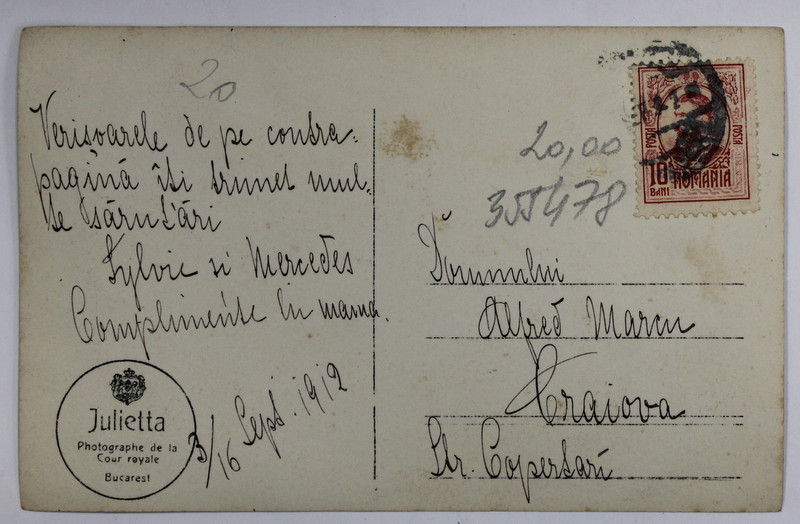 20
Verisoarele de pe contra-
pagină îți trimet mul-
te sărutări
Sylvie si Mercedes
Complimente lui mama.
3/16 Sept. 1912
Julietta
Photographe de la
Cour royale
Bucarest
POSTA
POSTA
10
BANI
ROMANIA
20,00
355478
Domnului
Alfred Marcu
Craiova
Str. Copertari